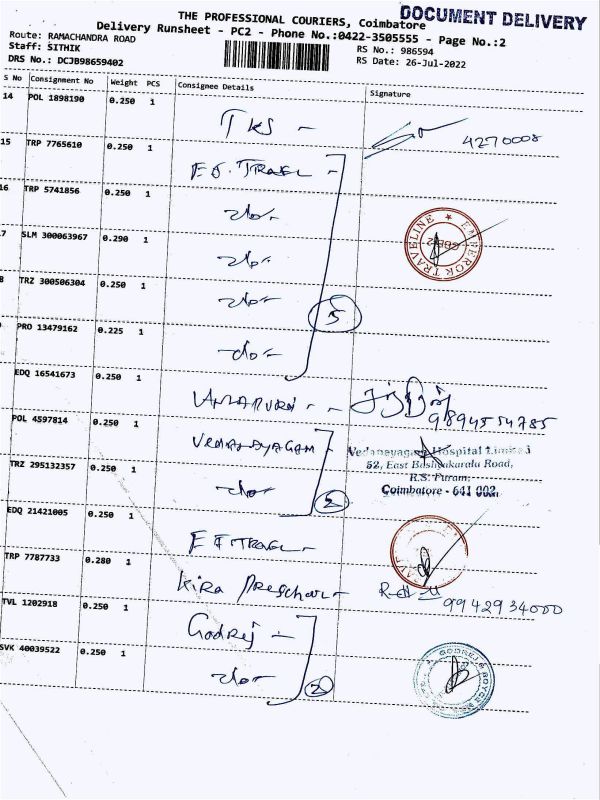 DOCUMENT DELIVERY
THE PROFESSIONAL COURIERS, Coimbatore
Delivery Runsheet - PC2 - Phone No.:0422-3505555 - Page No.:2
Route: RAMACHANDRA ROAD
Staff: SITHIK
RS No.: 986594
DRS No.: DCJB98659402
RS Date: 26-Jul-2022
S No Consignment No Weight PCS Consignee Details Signature
14 POL 1898190 0.250 1 TKS - 4270008
15 TRP 7765610 0.250 1
16 TRP 5741856 0.250 1 -do-
7 SLM 300063967 0.290 1 -do-
8 TRZ 300506304 0.250 1 -do-
5
PRO 13479162 0.225 1 -do-
EMPEROR TRAVELINE
EDQ 16541673 0.250 1 9894554785
POL 4597814 0.250 1 VEDANAYAGAM
Hospital Limited
52, East Bashyakaralu Road,
R.S. Puram,
Coimbatore - 641 002.
TRZ 295132357 0.250 1 -do- 2
EDQ 21421005 0.250 1
TRP 7787733 0.280 1 Kira Preschool - 9942934000
TVL 1202918 0.250 1 Godrej -
SVK 40039522 0.250 1 -do- 2
GODREJ & BOYCE